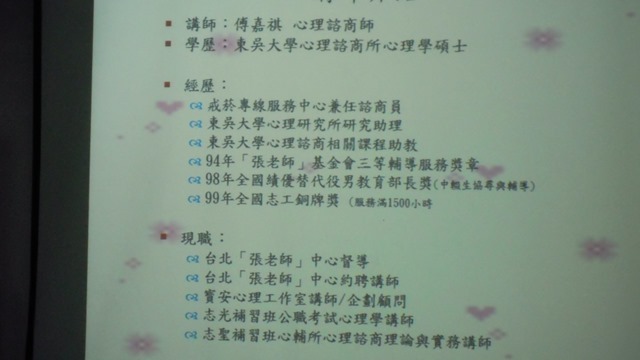 講師：傅嘉祺 心理諮商師
學歷：東吳大學心理諮商所心理學碩士
經歷：
戒菸專線服務中心兼任諮商員
東吳大學心理研究所研究助理
東吳大學心理諮商相關課程助教
94年「張老師」基金會三等輔導服務獎章
98年全國績優替代役男教育部長獎(中輟生協尋與輔導)
99年全國志工銅牌獎 (服務滿1500小時
現職：
台北「張老師」中心督導
台北「張老師」中心約聘講師
寳安心理工作室講師/企劃顧問
志光補習班公職考試心理學講師
志聖補習班心輔所心理諮商理論與實務講師